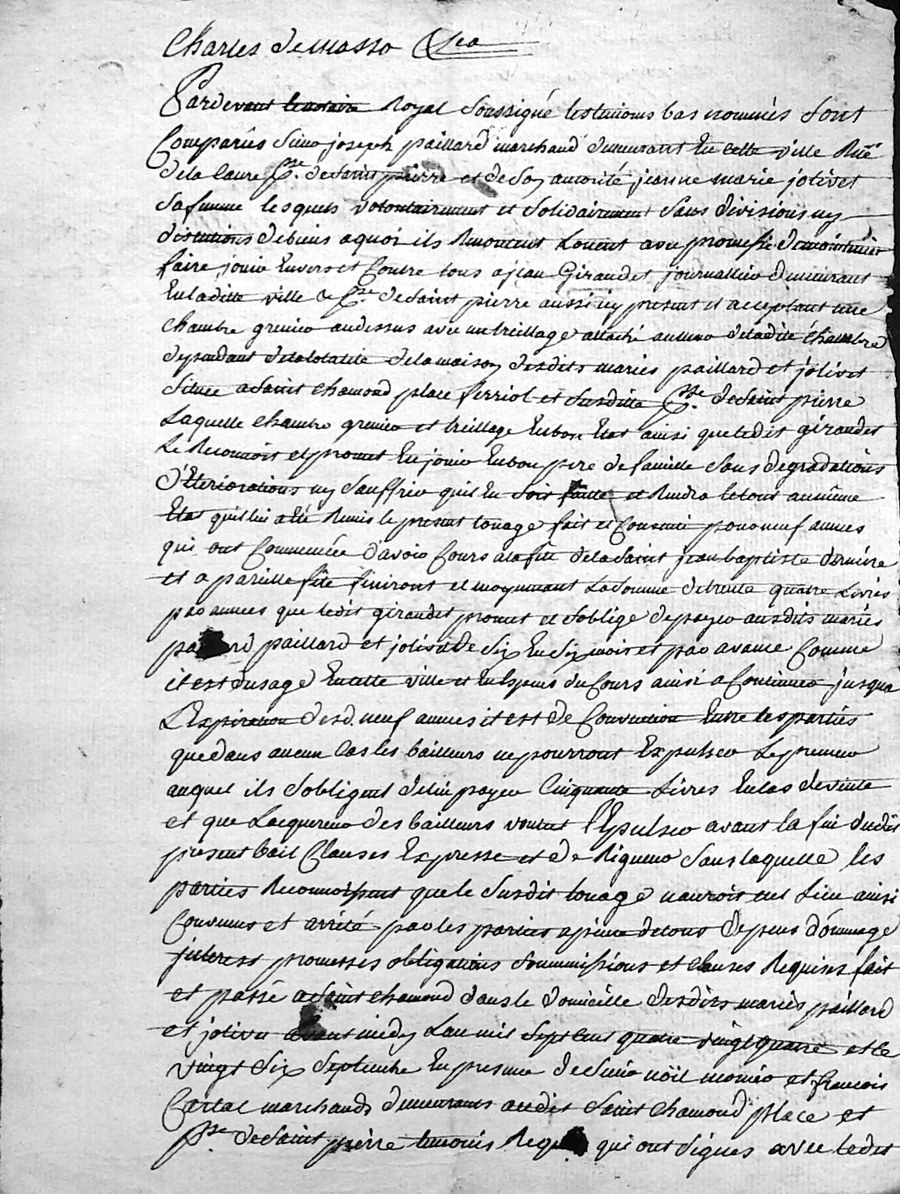 Charles demasso &ca
Pardevant le notaire Royal Soussigné les temoins bas nommés Sont
Comparûs Sieur joseph paillard marchand demeurant En cette ville Rüe
de la Caure psse. de Saint pierre et de Son autorité jeanne marie jolivet
Sa femme lesquels volontairement et Solidairement Sans divisions ny
distutions de biens a quoi ils Renoncent Louent avec promesse de maintenir
faire jouir Envers et Contre tous a jean Giraudet journallier demeurant
En laditte ville & psse. de Saint pierre aussi icy present et acceptant une
Chambre grenier au dessus avec un treillage attaché au mur de ladite Chambre
dependant de la totalité de la maison desdits mariés paillard et jolivet
Située a Saint Chamond place ferriol et Susditte psse. de Saint pierre
Laquelle Chambre grenier et treillage En bon Etat ainsi que ledit giraudet
Le Reconnoit et promet En jouir En bon pere de famille Sans degradations
d'Eteriorations ny Souffrir qu'il En Soit faitte et Rendra le tout au même
Etat qu'il lui a Eté Remis le present louage fait et Consenti pour neuf années
qui ont Commencée d'avoir Cours a la fête de la Saint jean baptiste derniére
et a pareille fête finiront et moyennant La Somme de trente quatre Livres
par années que ledit giraudet promet et S'oblige de payer ausdits mariés
paillard et jolivet de Six En Six mois et par avance Comme
il est d'usage En cette ville et En Especes du Cours ainsi a Continuer jusqua
L'Expiration desd. neuf années il est de Convention Entre les parties
que dans aucun Cas les bailleurs ne pourront Expulser Le preneur
auquel ils S'obligent de lui payer Cinquante Livres En Cas de vente
et que Lacquereur des bailleurs voulut l'Epulser avant la fin dudit
present bail Clauses Expresse et de Rigueur Sans laquelle les
parties Reconnoissent que le Susdit louage n'auroit eut Lieu ainsi
Convenus et arrêté par les parties a peine de tous depens dómmage
jnterest promesses obligations Soummissions et Clauses Requises fait
et passé a Saint Chamond dans le domicille desdits mariés paillard
et jolivet avant midy L'an mil Sept Cent quatre vingt quatre et le
vingt Six Septembre En presence de Sieur noël et françois
marchands demeurants audit Saint Chamond place et
psse. de Saint pierre temoins Requis qui ont Signés avec ledit